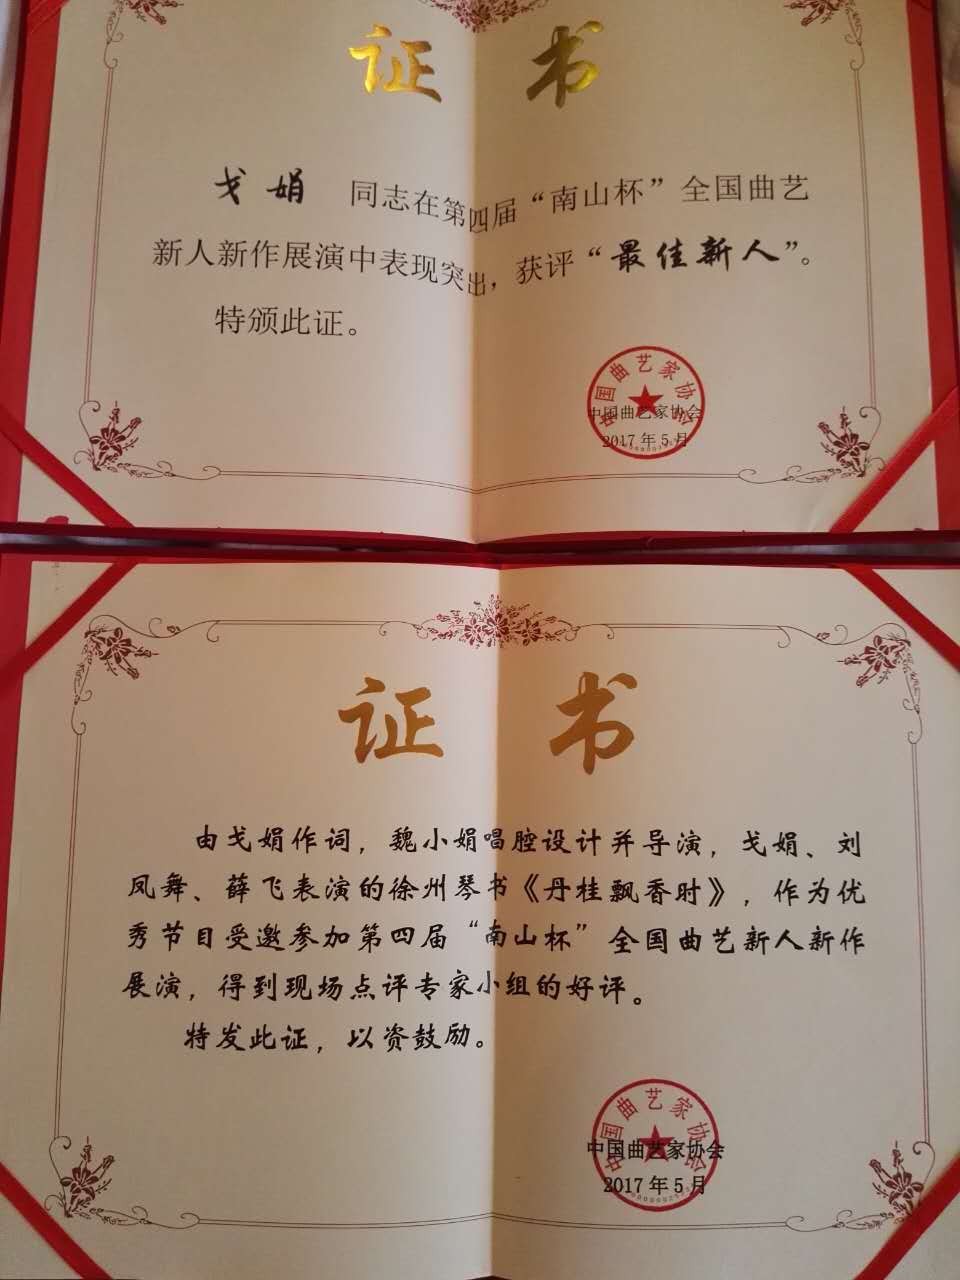 证书
戈娟 同志在第四届“南山杯”全国曲艺
新人新作展演中表现突出，获评“最佳新人”。
特颁此证。
中国曲艺家协会
中国曲艺家协会
2017年5月
证书
由戈娟作词，魏小娟唱腔设计并导演，戈娟、刘
凤舞、薛飞表演的徐州琴书《丹桂飘香时》，作为优
秀节目受邀参加第四届“南山杯”全国曲艺新人新作
展演，得到现场点评专家小组的好评。
特发此证，以资鼓励。
中国曲艺家协会
中国曲艺家协会
2017年5月